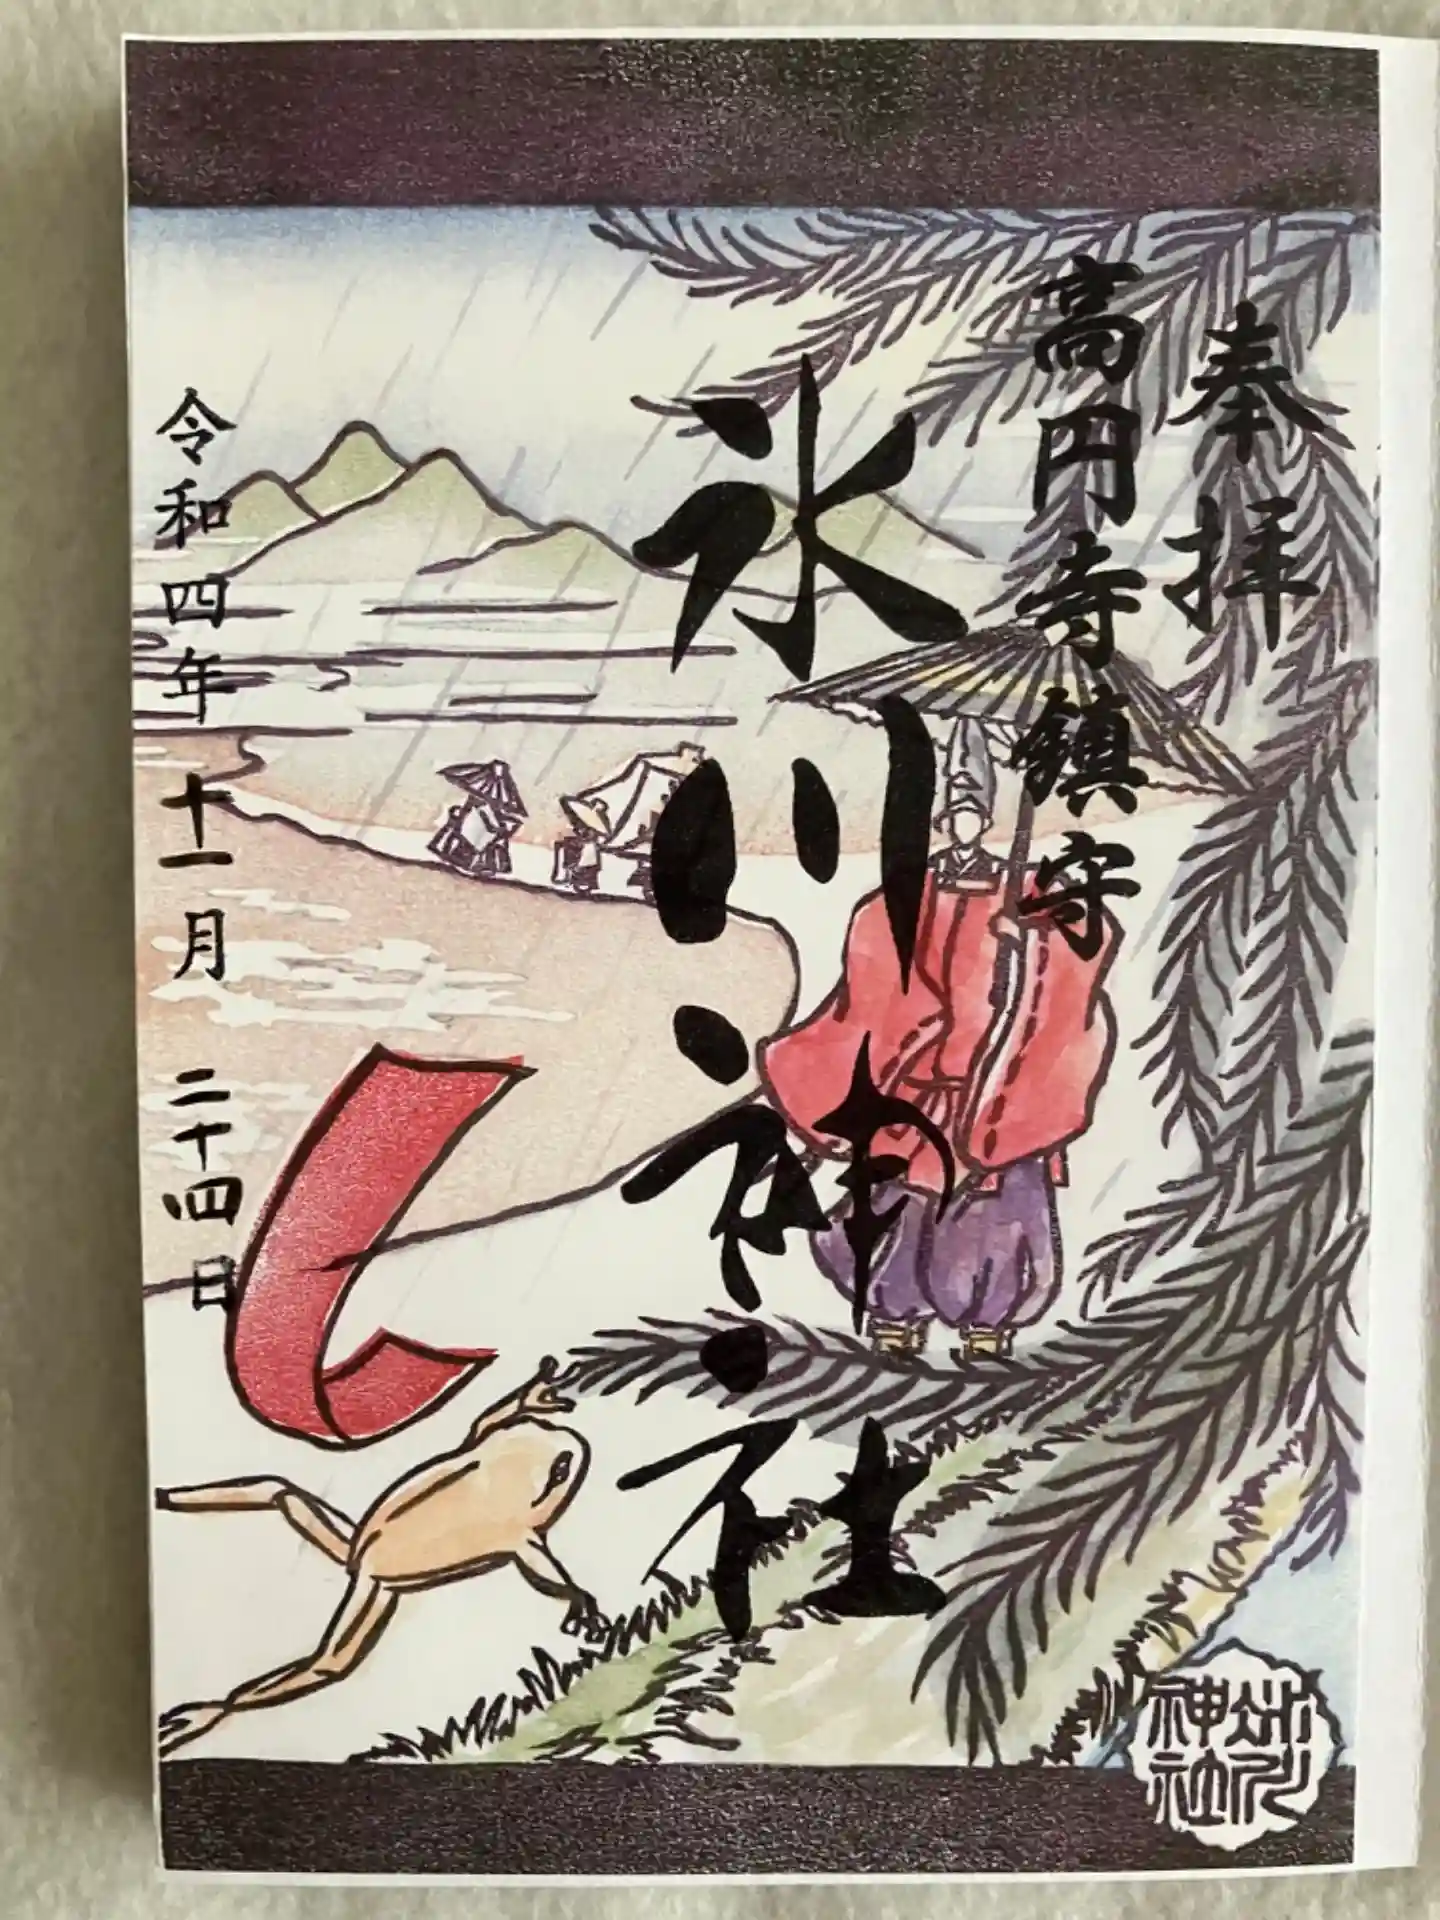 奉拝
高円寺鎮守
氷川神社
令和四年十一月二十四日
氷川
神社